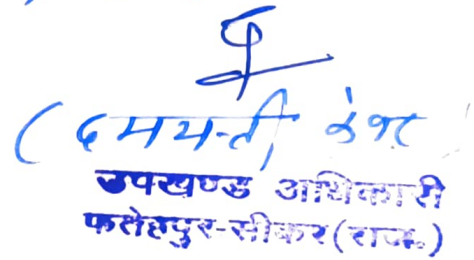 (दमयन्ती कंवर
उपखण्ड अधिकारी
फतेहपुर-सीकर (राज.)